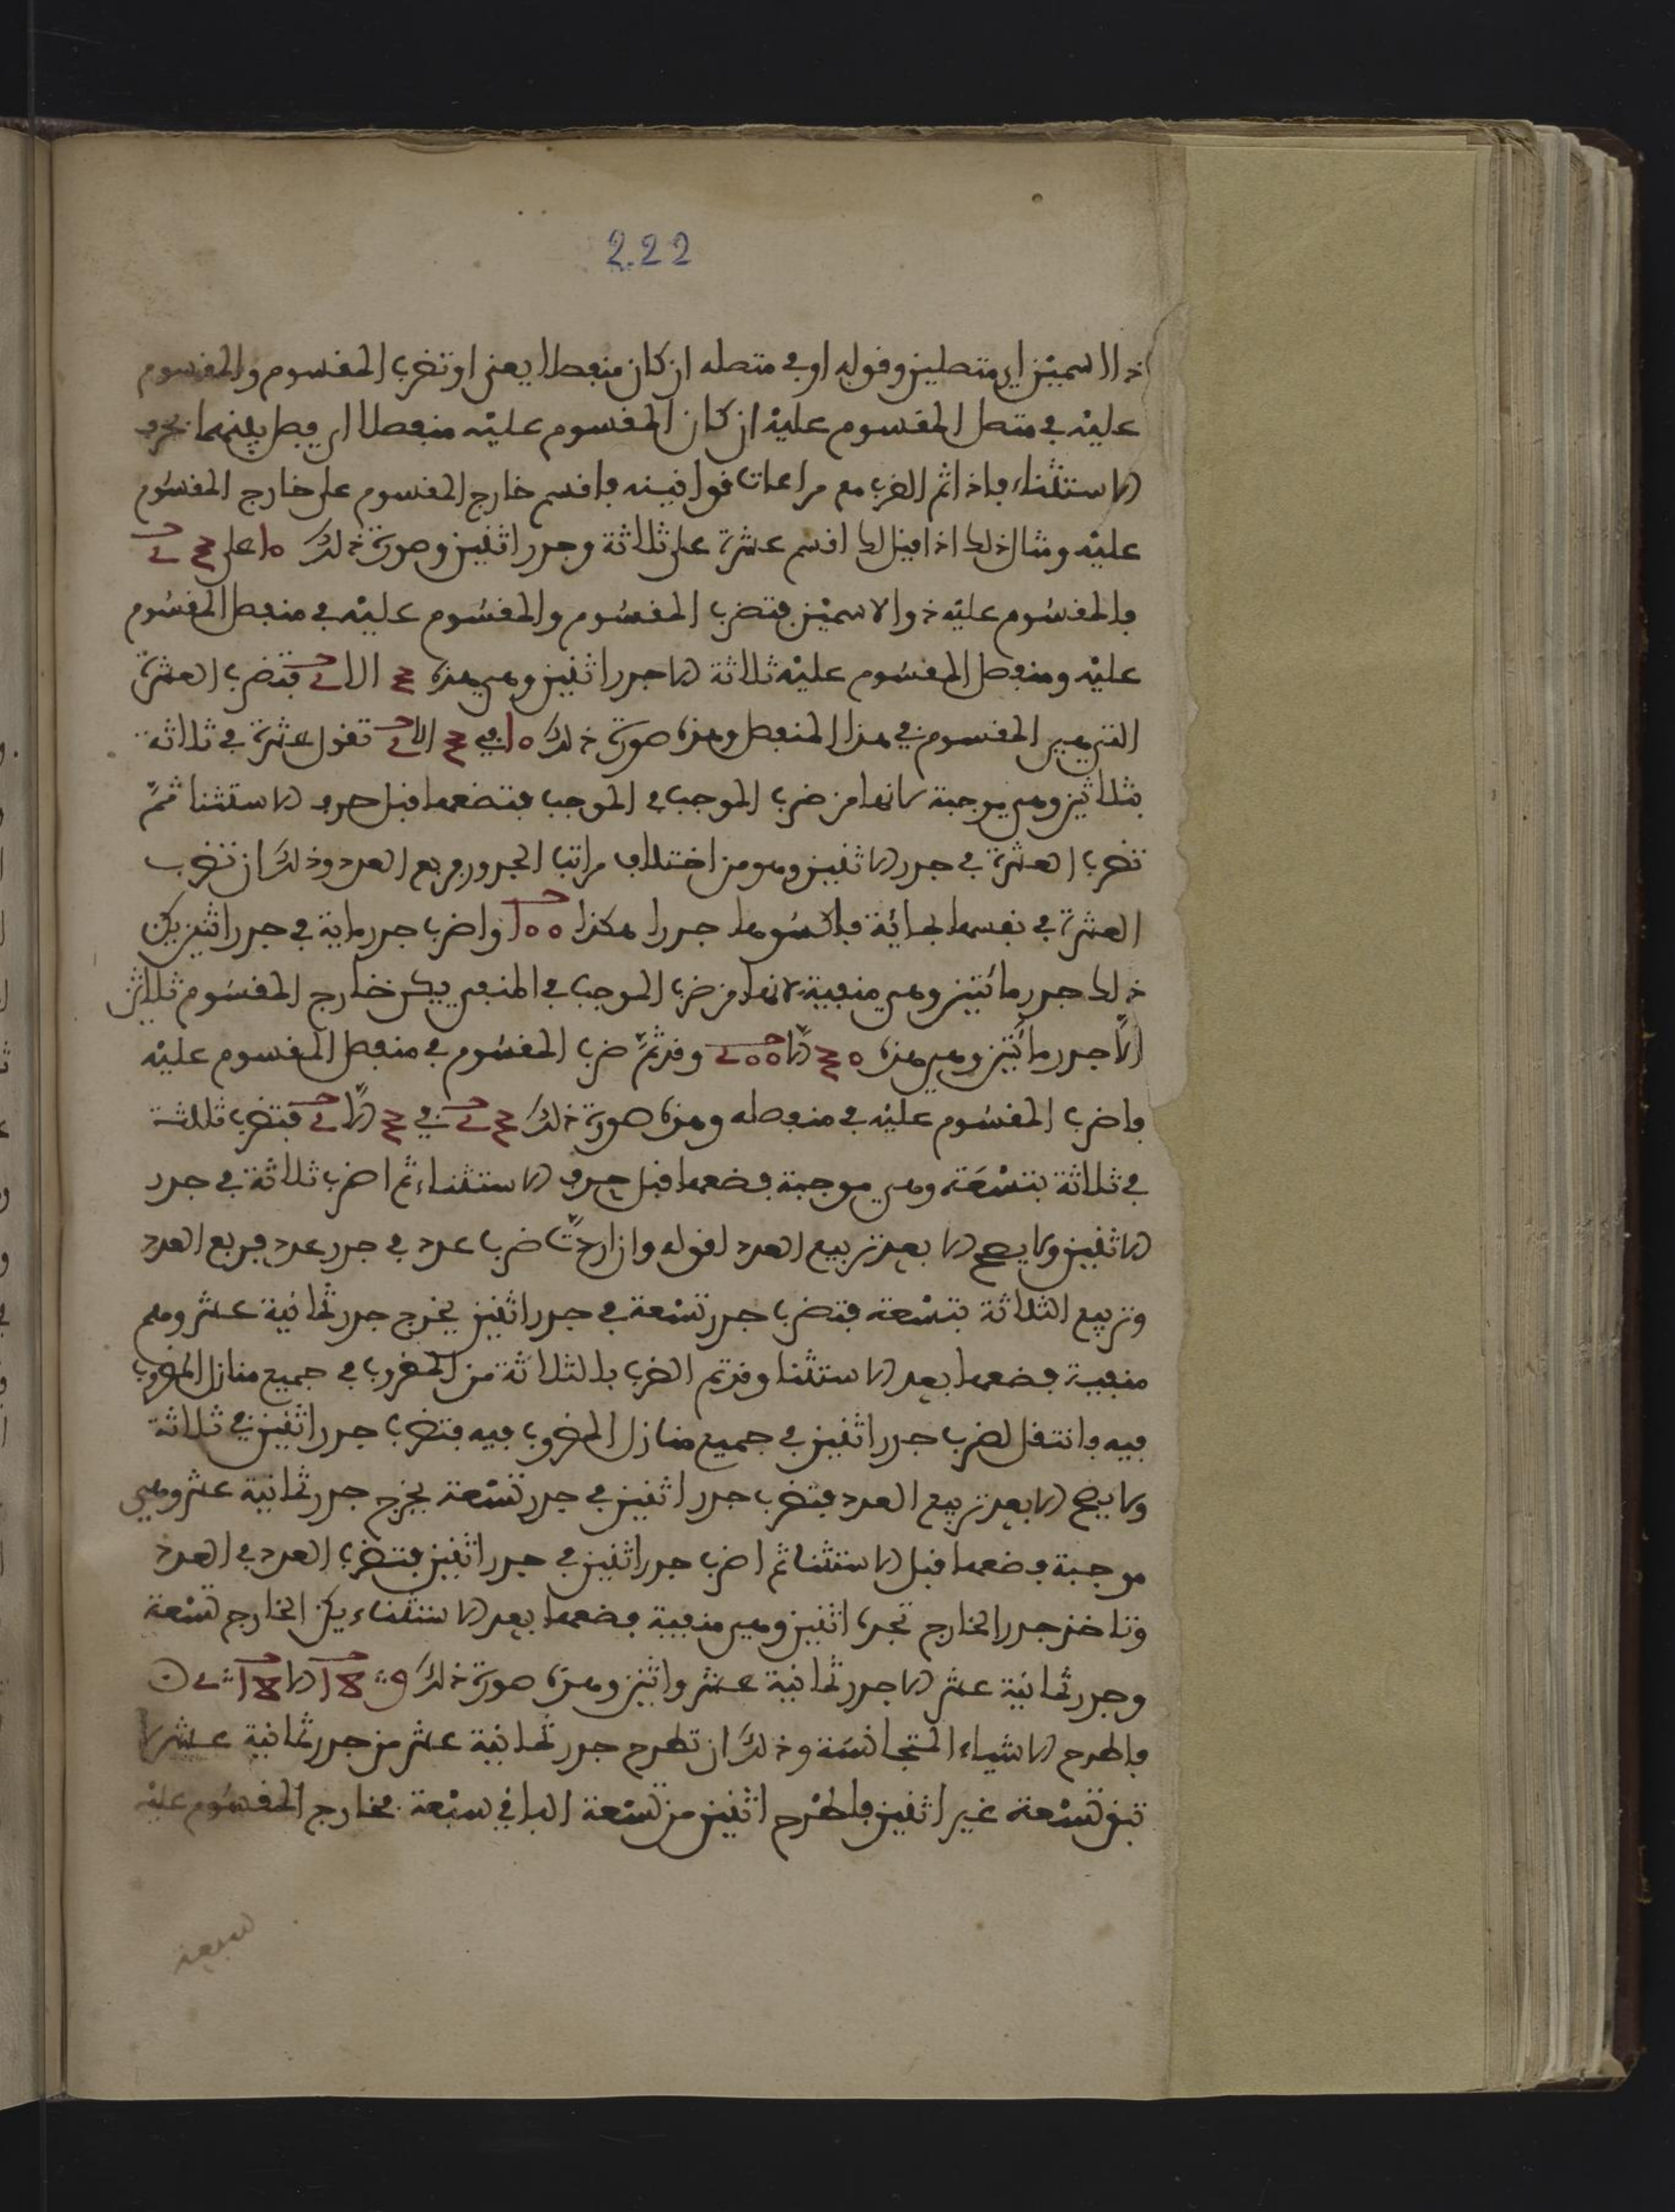 222
ذا الاسمين اي متصلين وقوله او في متصله ان كان منفصلا يعني او تضرب المقسوم والمقسوم
عليه في متصل المقسوم عليه ان كان المقسوم عليه منفصلا اي فصل بينهما بحرف
الاستثناء فاذا تم الضرب مع مراعات قوانينه فاقسم خارج المقسوم على خارج المقسوم
عليه ومثال ذلك اذا قيل لك اقسم عشرة على ثلاثة وجدر اثنين وصورة ذلك 10 على 3 2
فالمقسوم عليه ذوا الاسمين فتضرب المقسوم والمقسوم عليه في منفصل المقسوم
عليه ومنفصل المقسوم عليه ثلاثة الا جدر اثنين وهي هذه 3 الا 2 فتضرب العشرة
التي هي المقسوم في هذا المنفصل وهذه صورة ذلك 10 في 3 الا 2 تقول عشرة في ثلاثة
بثلاثين وهي موجبة لانها من ضرب الموجب في الموجب فتضعها قبل حرف الاستثنا ثمّ
تضرب العشرة في جدر الاثنين وهو من اختلاف مراتب الجدور فربع العدد وذلك ان تضرب
العشرة في نفسها بمائة فاكسوها جدرا هكذا 100 واضرب جدر ماية في جدر اثنين يكن
ذلك جدر مائتين وهي منفية لانها من ضرب الموجب في المنفي يكن خارج المقسوم ثلاثين
الّا جدر مائتين وهي هذه 30 الّا 200 وقد تمّ ضرب المقسوم في منفصل المقسوم عليه
فاضرب المقسوم عليه في منفصله وهذه صورة ذلك 3 2 في 3 الّا 2 فتضرب ثلثة
في ثلاثة بتسعة وهي موجبة فضعها قبل حرف الاستثناء ثم اضرب ثلاثة في جدر
الاثنين ولا يصح الا بعد تربيع العدد لقوله وان اردتّ ضرب عدد في جدر عدد فربع العدد
وتربيع الثلاثة بتسعة فتضرب جدر تسعة في جدر اثنين يخرج جدر ثمانية عشر وهي
منفية فضعها بعد الاستثنا وقد تم الضرب بالثلاثة من المضروب في جميع منازل المضروب
فيه فانتقل لضرب جدر اثنين في جميع منازل المضروب فيه فتضرب جدر اثنين في ثلاثة
ولا يصح الا بعد تربيع العدد فتضرب جدر اثنين في جدر تسعة يخرج جدر ثمانية عشر وهي
موجبة فضعها قبل الاستثنا ثم اضرب جدر اثنين في جدر اثنين فتضرب العدد في العدد
وتاخذ جدر الخارج تجده اثنين وهي منفية فضعها بعد الاستثناء يكن الخارج تسعة
وجدر ثمانية عشر الا جدر ثمانية عشر واثنين وهذه صورة ذلك 9 18 الا 18 2
فاطرح الاشياء المتجانسة وذلك ان تطرح جدر ثمانية عشر من جدر ثمانية عشر
تبق تسعة غير اثنين فاطرح اثنين من تسعة الباقي سبعة فخارج المقسوم عليه
سبعة